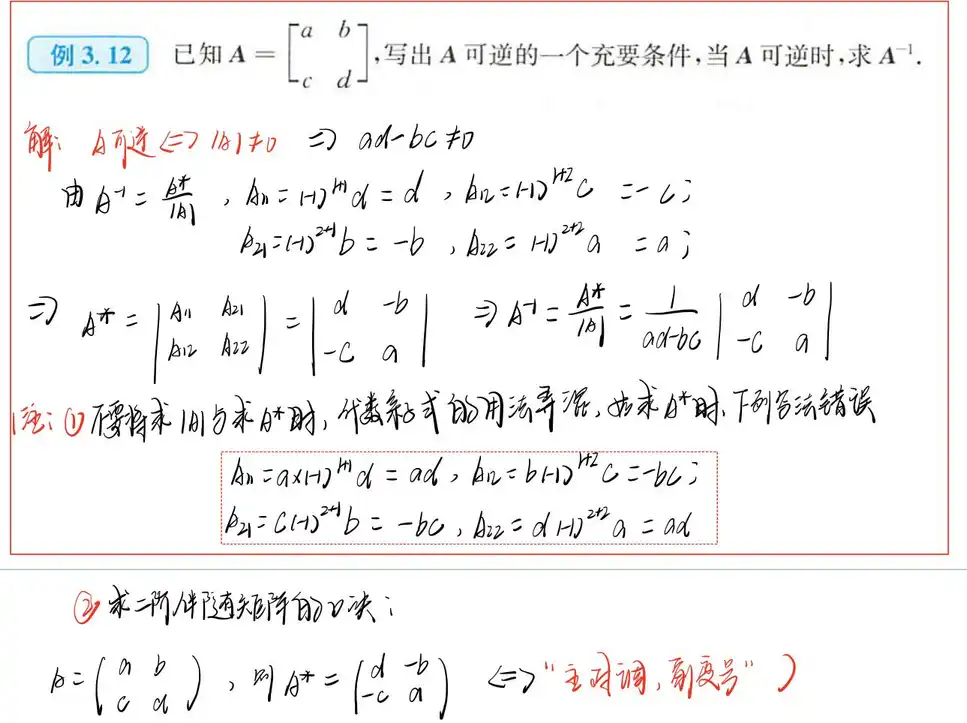 例 3.12 已知 A = [a b c d], 写出 A 可逆的一个充要条件, 当 A 可逆时, 求 A⁻¹.
解: A可逆 <=> |A|≠0 => ad-bc≠0
由 A⁻¹ = A*/|A| , A₁₁ = (-1)¹⁺¹d = d , A₁₂ = (-1)¹⁺²c = -c ;
A₂₁ = (-1)²⁺¹b = -b , A₂₂ = (-1)²⁺²a = a ;
=> A* = |A₁₁ A₂₁ A₁₂ A₂₂| = |d -b -c a| => A⁻¹ = A*/|A| = 1/(ad-bc) |d -b -c a|
注: ① 不要将求|A|与求A*时, 代数余子式的用法弄混, 如求A*时, 下列写法错误
A₁₁ = a×(-1)¹⁺¹d = ad , A₁₂ = b(-1)¹⁺²c = -bc ;
A₂₁ = c(-1)²⁺¹b = -bc , A₂₂ = d(-1)²⁺²a = ad
② 求二阶伴随矩阵的口诀 ;
A = (a b c d) , 则 A* = (d -b -c a) <=> "主对调, 副变号" )